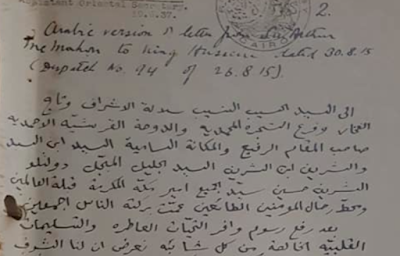 Assistant Oriental Secretary.
2.
CAIRO
Arabic version of letter from Sir Arthur
McMahon to King Hussein dated 30.8.15
(Despatch No. 94 of 26.8.15).
الى السيد الحسيب النسيب سلالة الاشراف وتاج
الفخار وفرع الشجرة المحمدية والدوحة القرشية الاحمدية
صاحب المقام الرفيع والمكانة السامية السيد ابن السيد
والشريف ابن الشريف السيد الجليل المبجل دولتلو
الشريف حسين سيد الجميع امير مكة المكرمة قبلة العالمين
ومحط رحال المؤمنين الطائعين عمت بركته الناس اجمعين
بعد رفع رسوم وافر التحيات العاطرة والتسليمات
القلبية الخالصة من كل شائبة نعرض ان لنا الشرف